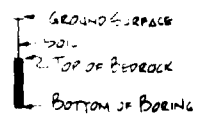 GROUND SURFACE
SOIL
TOP OF BEDROCK
BOTTOM OF BORING